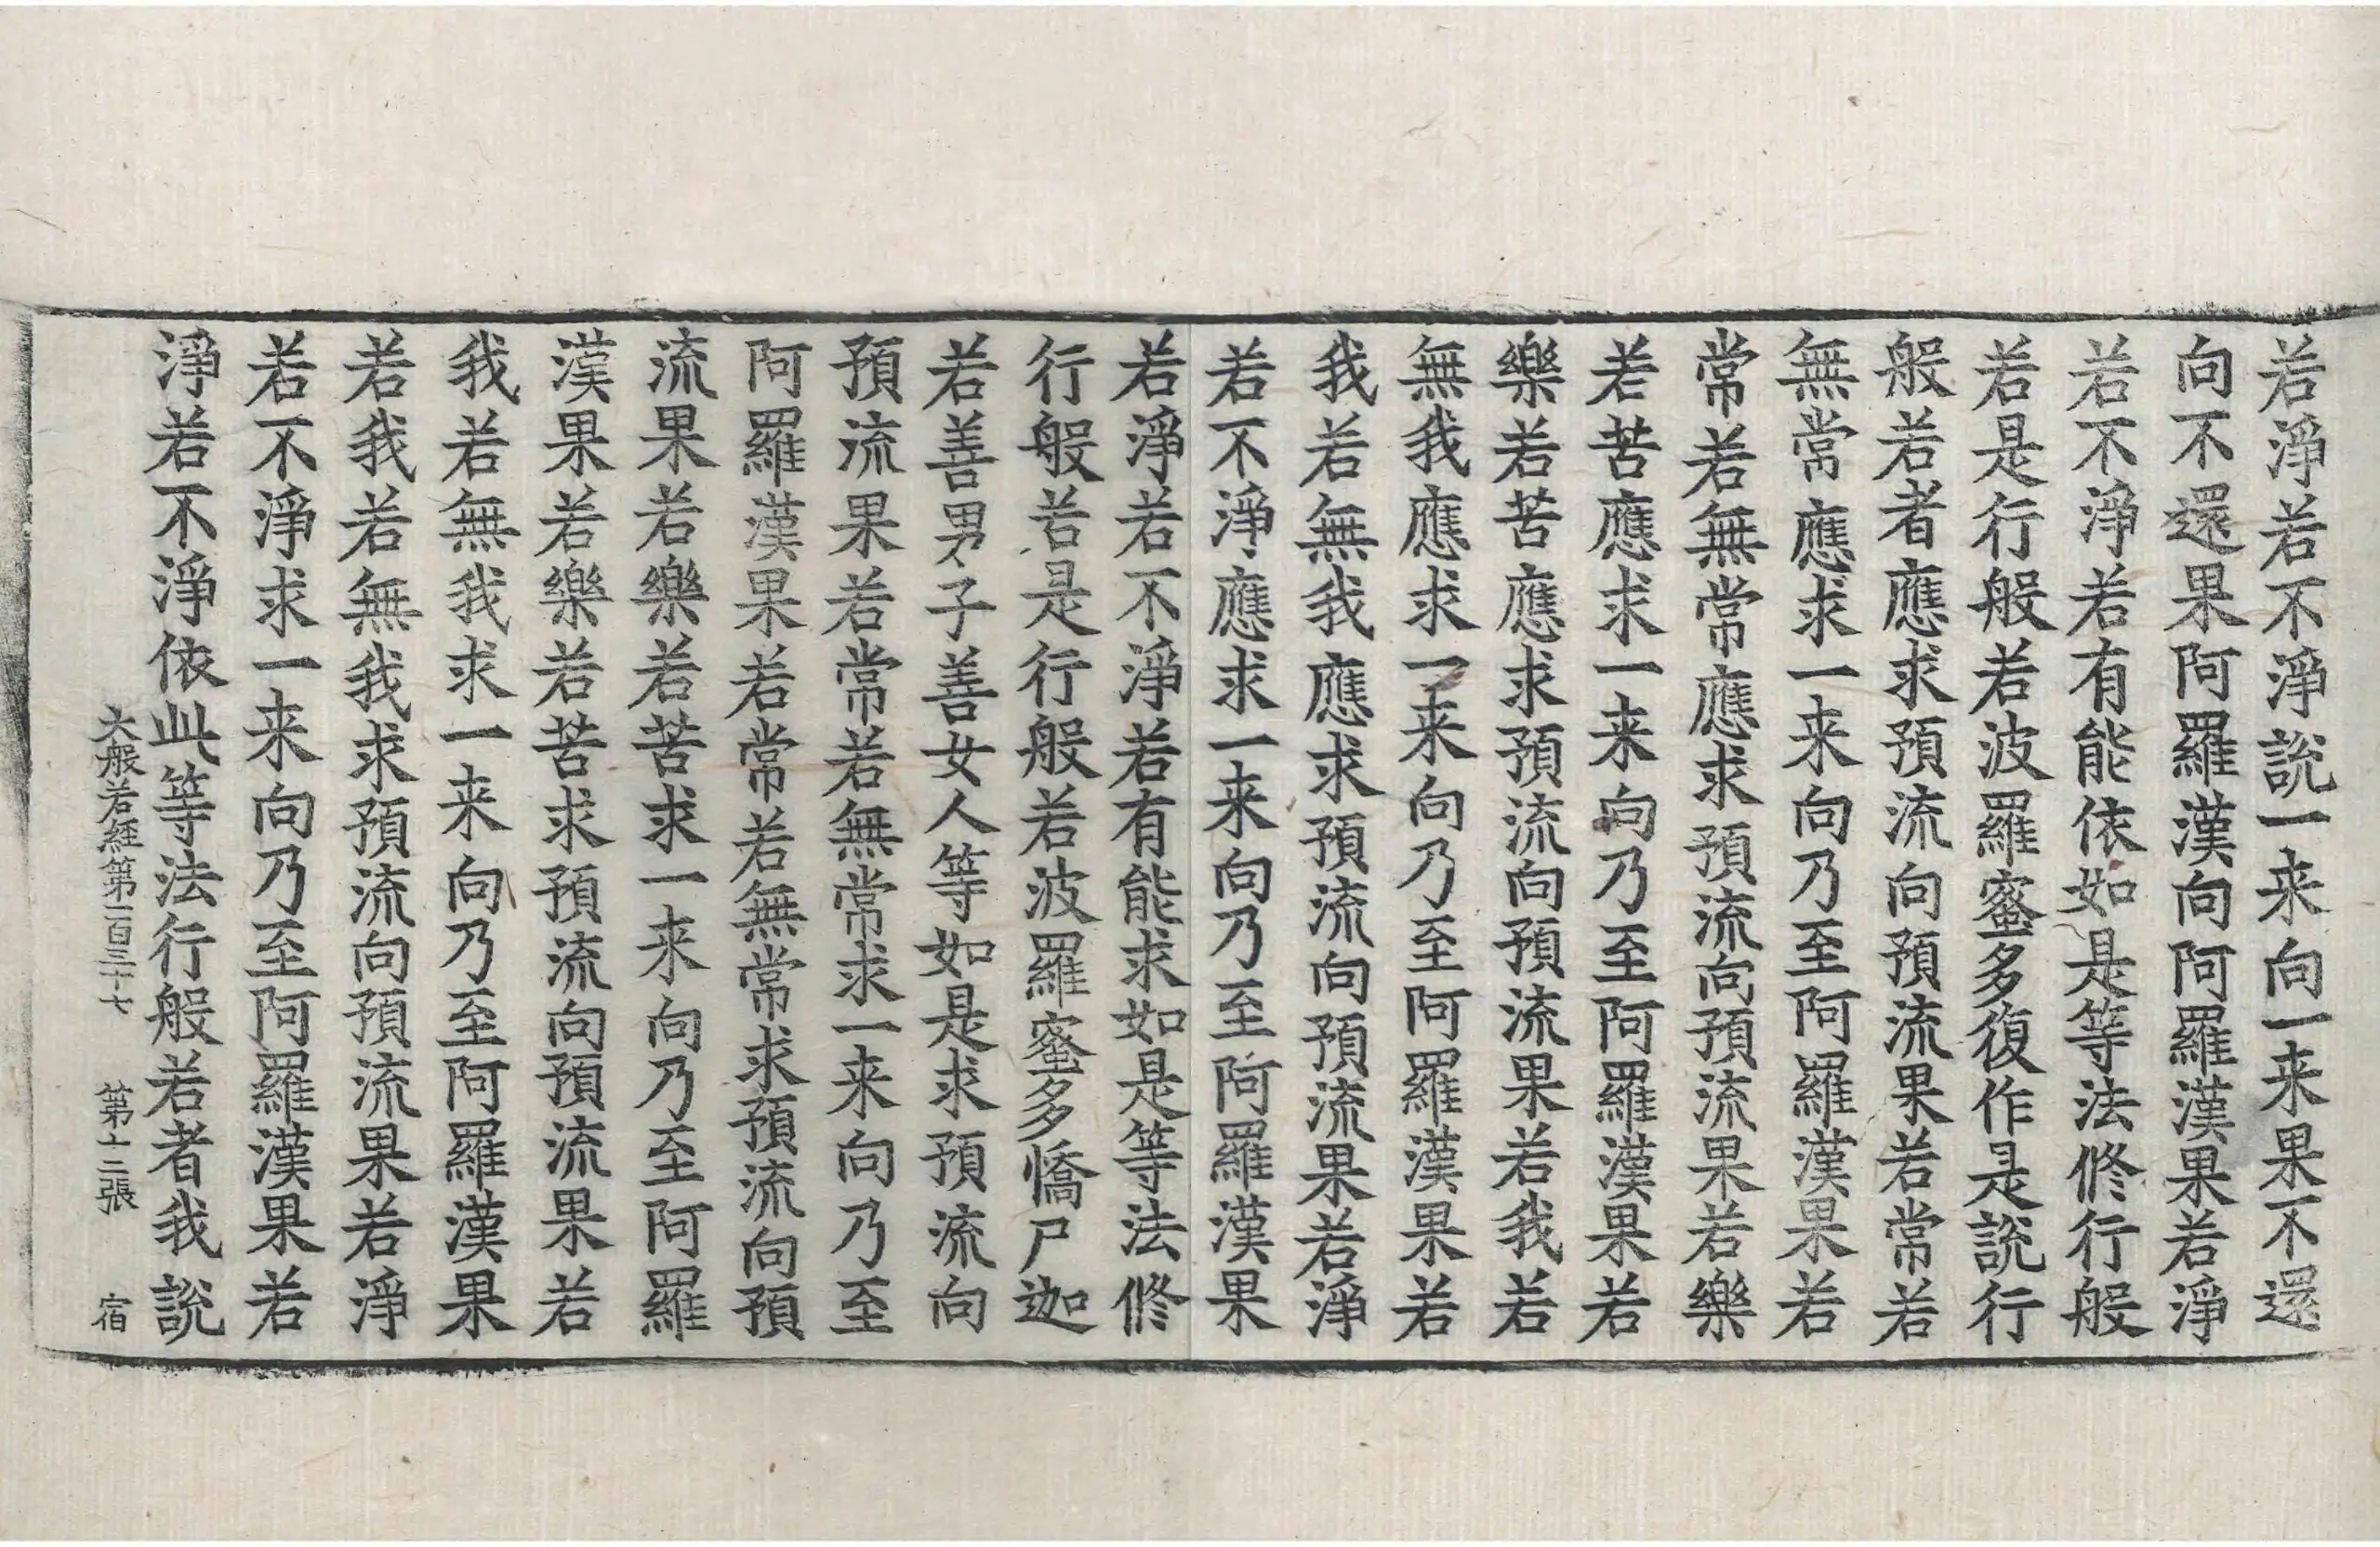 若淨若不淨說一来向一来果不還
向不還果阿羅漢向阿羅漢果若淨
若不淨若有能依如是等法修行般
若是行般若波羅蜜多復作是說行
般若者應求預流向預流果若常若
無常應求一来向乃至阿羅漢果若
常若無常應求預流向預流果若樂
若苦應求一来向乃至阿羅漢果若
樂若苦應求預流向預流果若我若
無我應求一来向乃至阿羅漢果若
我若無我應求預流向預流果若淨
若不淨應求一来向乃至阿羅漢果
若淨若不淨若有能求如是等法修
行般若是行般若波羅蜜多憍尸迦
若善男子善女人等如是求預流向
預流果若常若無常求一来向乃至
阿羅漢果若常若無常求預流向預
流果若樂若苦求一来向乃至阿羅
漢果若樂若苦求預流向預流果若
我若無我求一来向乃至阿羅漢果
若我若無我求預流向預流果若淨
若不淨求一来向乃至阿羅漢果若
淨若不淨依此等法行般若者我說
大般若經第二百三十七 第十二張 宿